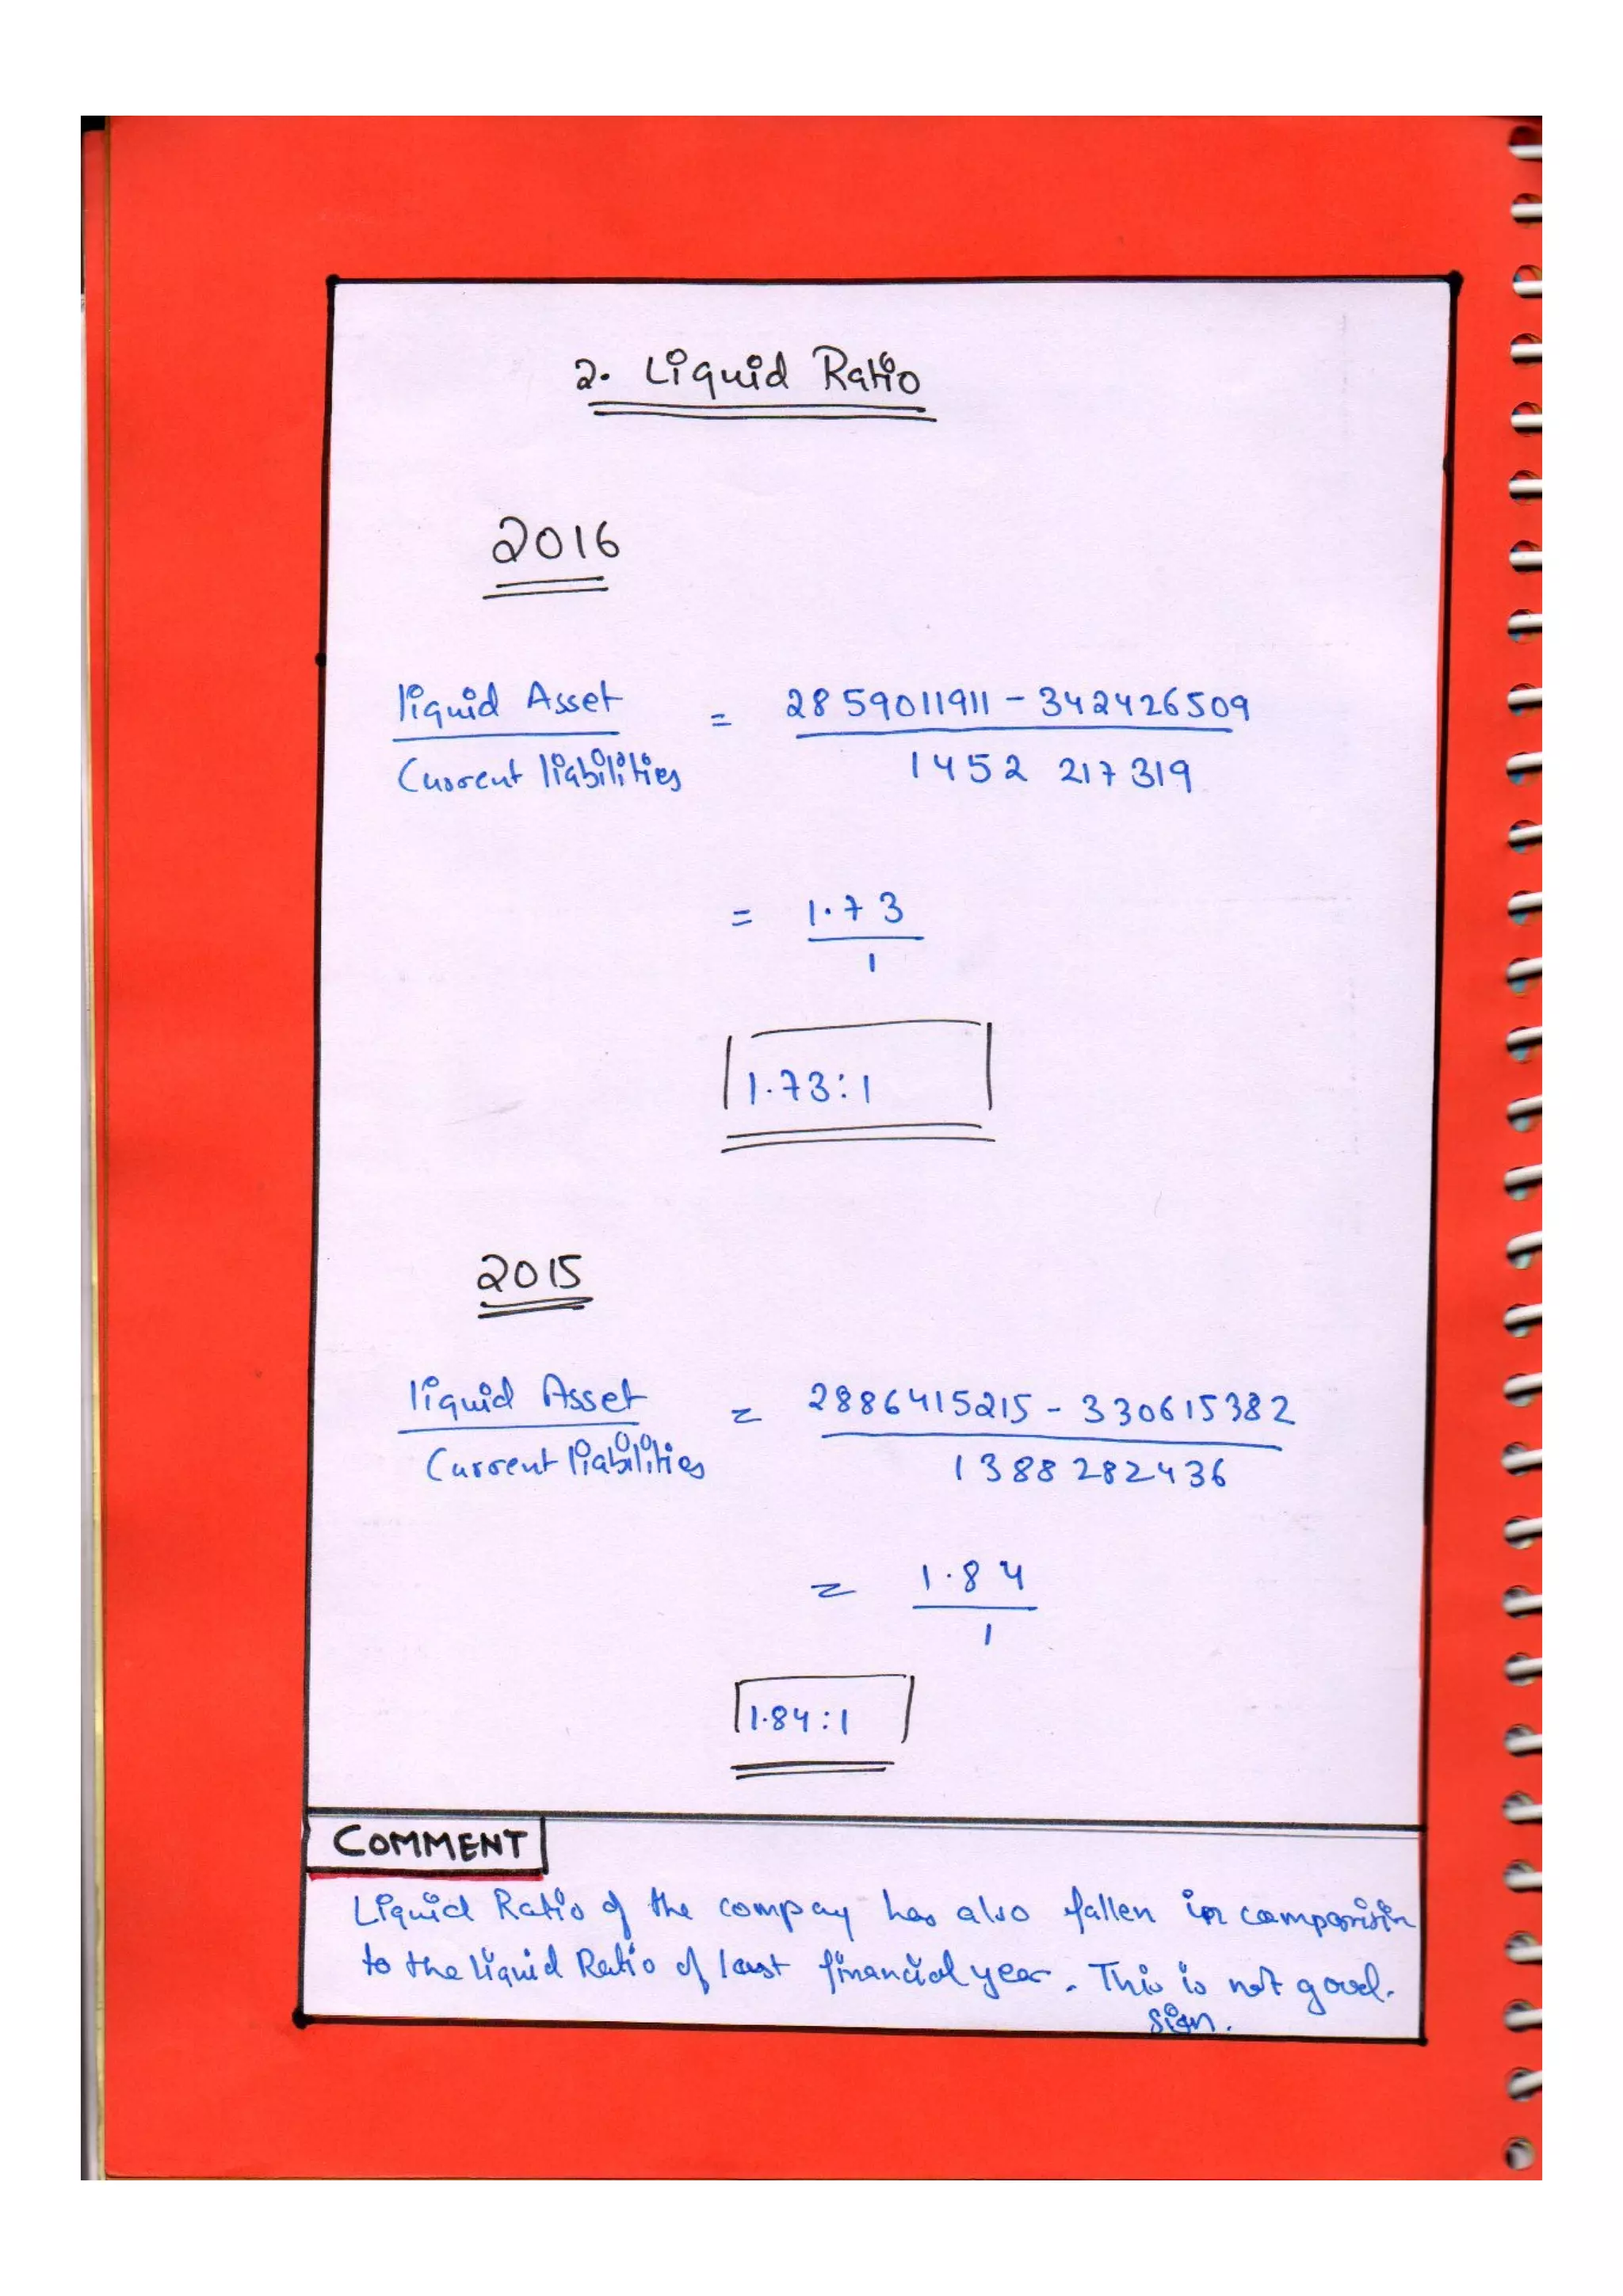 2. Liquid Ratio
2016
liquid Asset = 2859011911 - 342426509
Current liabilities 1452 217319
= 1.73
1
1.73:1
2015
liquid Asset = 2886415215 - 330615382
Current liabilities 1388282436
= 1.84
1
1.84:1
COMMENT
Liquid Ratio of the compay has also fallen in comparisin
to the liquid Ratio of last financial year. This is not good.
sign.